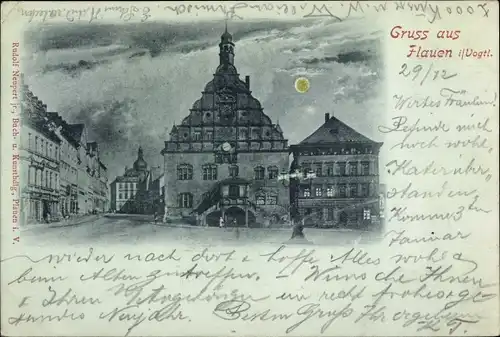 2000 Küsse v. W.
Gruss aus
Plauen i/Vogtl.
29/12
Wertes Fräulein
Befinde mich
hoch wohl,
Komme 3ten
Januar
wieder nach dort & hoffe Alles wohl &
beim Alten anzutreffen. Wünsche Ihnen
& Ihren Angehörigen ein recht frohes ge-
sundes Neujahr. Besten Gruß Ihr ergebener
Rudolf Neupert jr., Buch- u. Kunsthdlg., Plauen i. V.